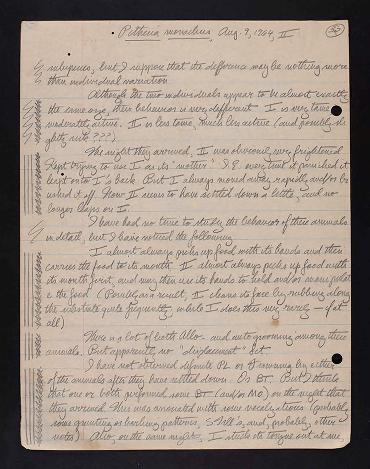 Pithecia monachus Aug. 9, 1964, II
subspecies, but I suppose that the difference may be nothing more
than individual variation
Although the two individuals appear to be almost exactly
the same age, their behavior is very different. I is very tame
moderately active. II is less tame, much less active (and possibly
???).
The night they arrived, II was obviously very frightened
kept trying to use I as its "mother". I.E. every time it
leapt onto I's back. But I always moved away, rapidly, and/or
it off. Now II seems to have settled down a little, and no
longer leaps on I.
I have had no time to study the behavior of these animals
in detail, but I have noticed the following.
I almost always picks up food with its hands and then
carries the food to its mouth. II almost always picks up food with
its mouth first, and may then use its hands to hold and/or
the food. (Possibly as a result, II cleans its face by rubbing along
the substrate quite frequently, while I does this very rarely — if at
all)
There is a lot of both Allo- and auto grooming among these
animals. But apparently no "displacement" yet
I have not observed definite by either
of the animals after they have settled down. Or BT. But I think
that one or both performed some BT (and/or MO) on the night that
they arrived. This was associated with some vocalizations (probably
some grunting or barking patterns, and, probably, other
notes). Also, on the same night, I stuck its tongue out at me,